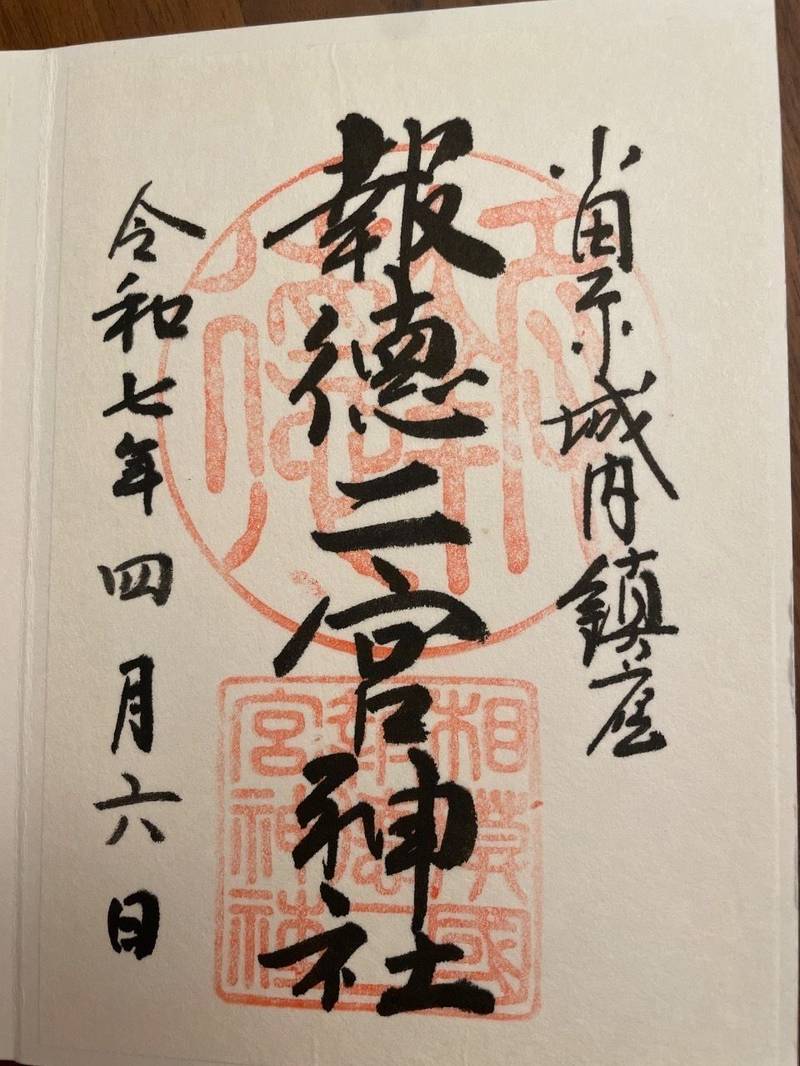 小田原城内鎮座
報徳二宮神社
令和七年四月六日
相模國
報徳二
宮神社